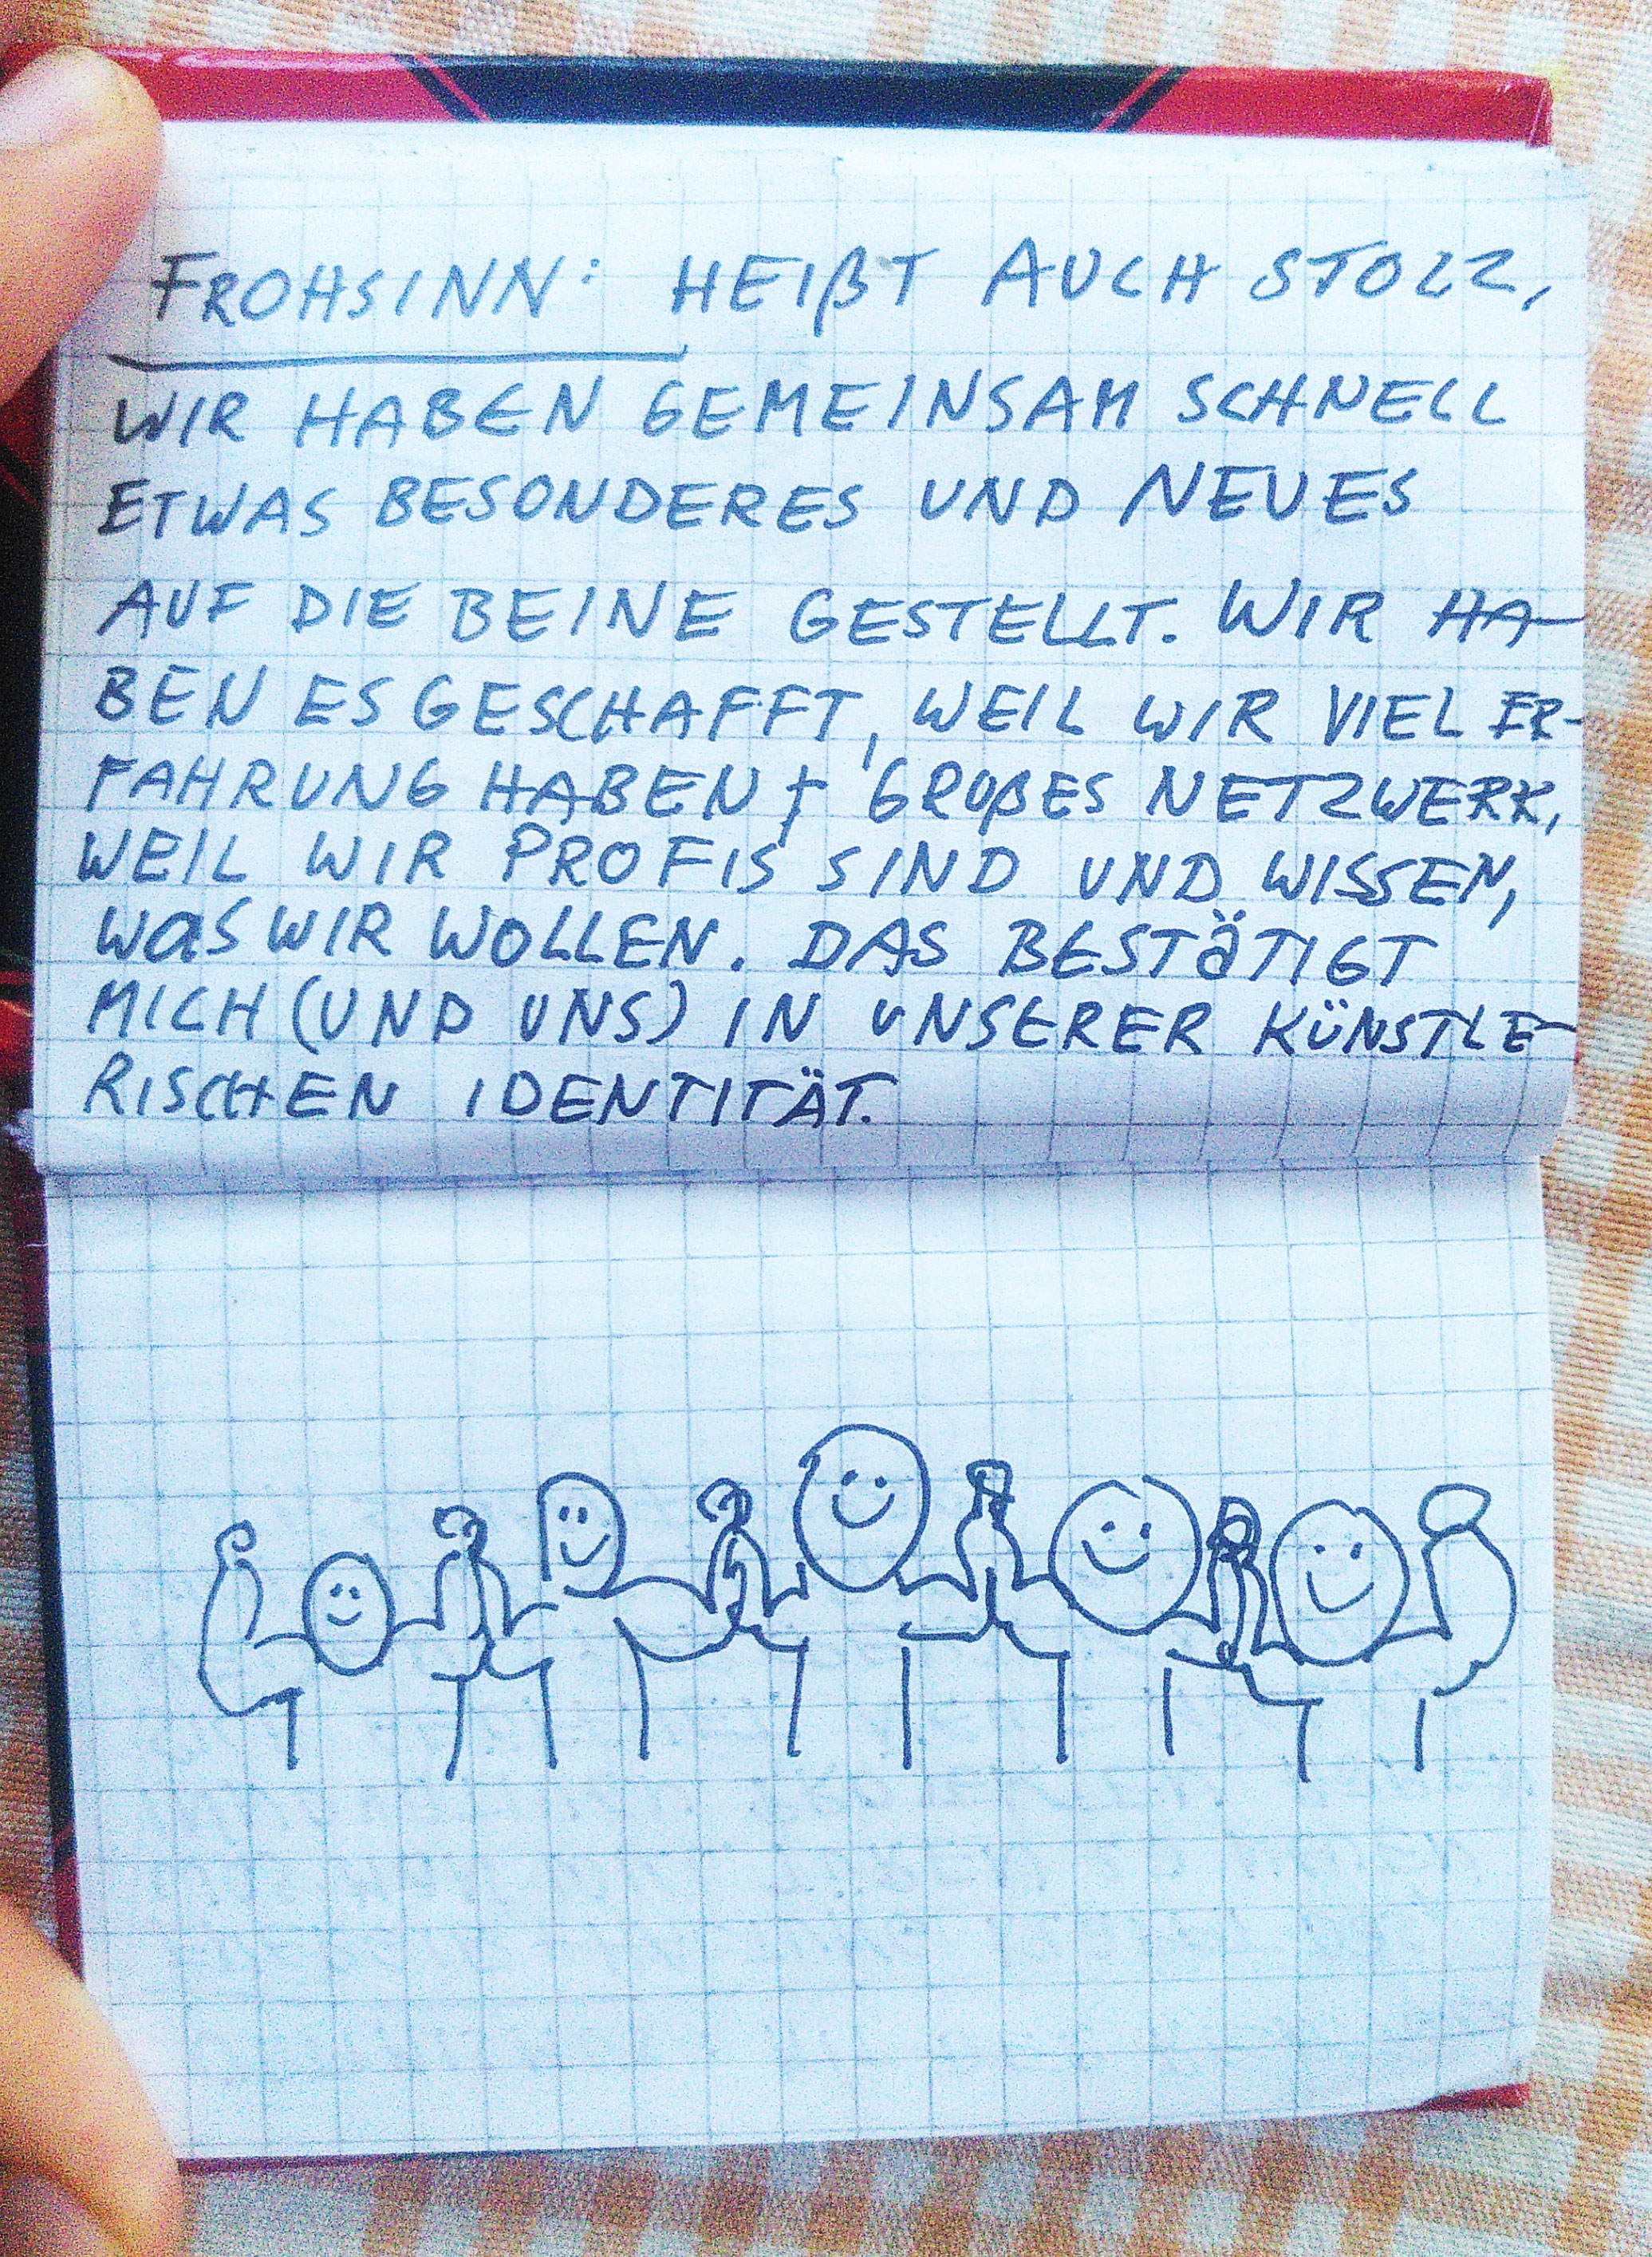 FROHSINN: HEIßT AUCH STOLZ,
WIR HABEN GEMEINSAM SCHNELL
ETWAS BESONDERES UND NEUES
AUF DIE BEINE GESTELLT. WIR HA-
BEN ES GESCHAFFT, WEIL WIR VIEL ER-
FAHRUNG HABEN + GROßES NETZWERK,
WEIL WIR PROFIS SIND UND WISSEN,
WAS WIR WOLLEN. DAS BESTÄTIGT
MICH (UND UNS) IN UNSERER KÜNSTLE-
RISCHEN IDENTITÄT.